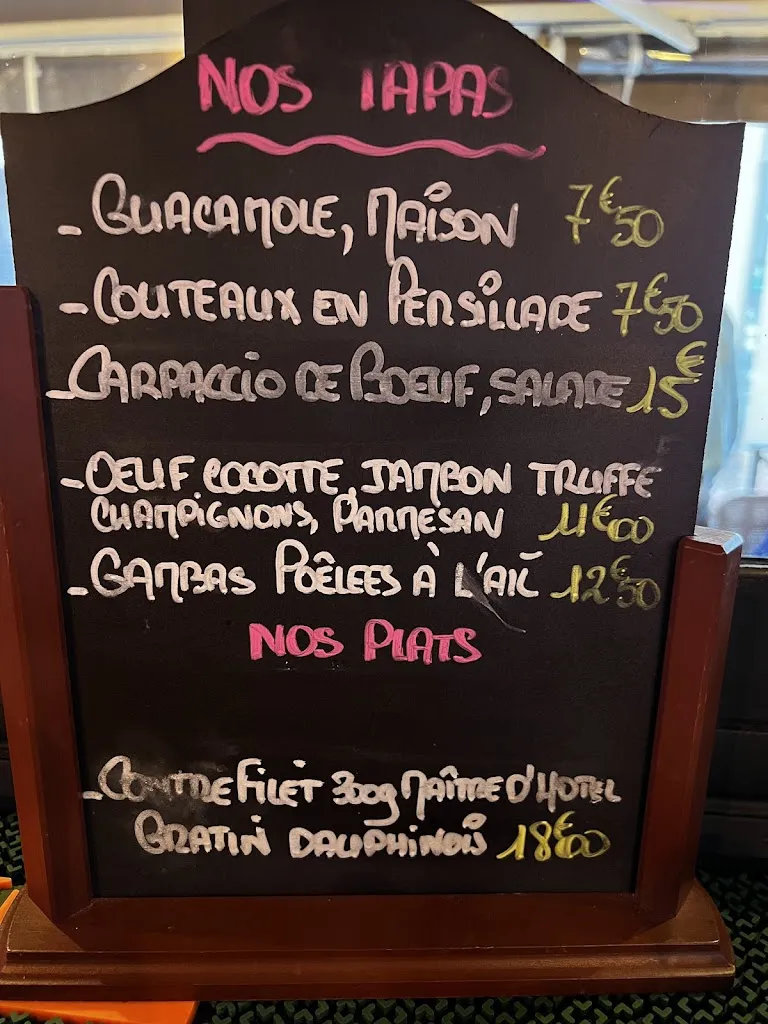 NOS TAPAS
- GUACAMOLE, MAISON 7€50
- COUTEAUX EN PERSILLADE 7€50
- CARPACCIO DE BOEUF, SALADE 15€
- OEUF COCOTTE, JAMBON TRUFFE
CHAMPIGNONS, PARMESAN 11€00
- GAMBAS POÊLEES À L'AIL 12€50
NOS PLATS
- CONTRE FILET 300g MAÎTRE D'HOTEL
GRATIN DAUPHINOIS 18€00